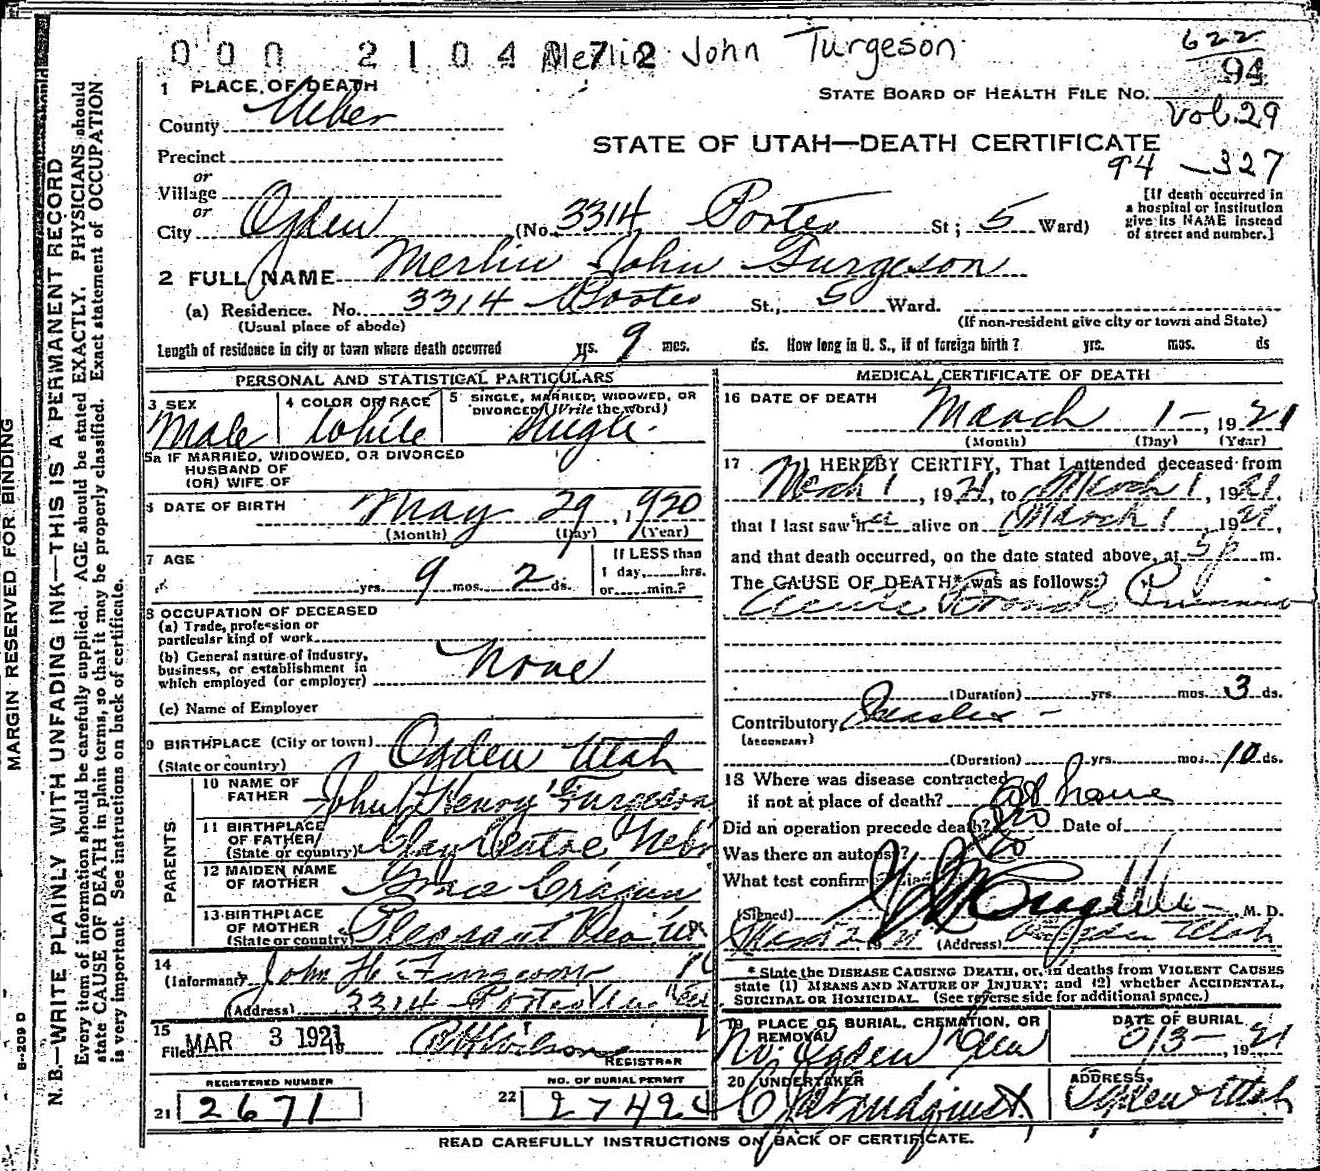 000 2104 272 Merlin John Turgeson
622
94
1 PLACE OF DEATH
County Weber
STATE BOARD OF HEALTH FILE NO.
Vol. 29
Precinct
STATE OF UTAH—DEATH CERTIFICATE
94 -327
or
Village
or
City Ogden (No. 3314 Porter St; 5 Ward)
[If death occurred in
a hospital or institution
give its NAME instead
of street and number.]
2 FULL NAME Merlin John Turgeson
(a) Residence. No. 3314 Porter St., 5 Ward.
(Usual place of abode) (If non-resident give city or town and State)
Length of residence in city or town where death occurred yrs. 9 mos. ds. How long in U. S., if of foreign birth? yrs. mos. ds
PERSONAL AND STATISTICAL PARTICULARS
3 SEX
Male
4 COLOR OR RACE
White
5 SINGLE, MARRIED, WIDOWED, OR
DIVORCED (Write the word)
Single.
5a IF MARRIED, WIDOWED, OR DIVORCED
HUSBAND OF
(OR) WIFE OF
6 DATE OF BIRTH May 29, 1920
(Month) (Day) (Year)
7 AGE
yrs. 9 mos. 2 ds.
If LESS than
1 day, hrs.
or min.?
8 OCCUPATION OF DECEASED
(a) Trade, profession or
particular kind of work
(b) General nature of industry,
business, or establishment in
which employed (or employer) None
(c) Name of Employer
9 BIRTHPLACE (City or town) Ogden Utah
(State or country)
PARENTS
10 NAME OF
FATHER John Henry Turgeson
11 BIRTHPLACE
OF FATHER
(State or country) Clay Centre Nebr
12 MAIDEN NAME
OF MOTHER Grace
13 BIRTHPLACE
OF MOTHER
(State or country) Pleasant View Ut
14
(Informant) John H. Turgeson
(Address) 3314 Porter Ave
15
Filed MAR 3 1921 19
REGISTRAR
REGISTERED NUMBER
21 2671
NO. OF BURIAL PERMIT
22 2749
MEDICAL CERTIFICATE OF DEATH
16 DATE OF DEATH
March 1 -, 1921
(Month) (Day) (Year)
17 I HEREBY CERTIFY, That I attended deceased from
March 1, 1921, to March 1, 1921,
that I last saw h alive on March 1, 1921,
and that death occurred, on the date stated above, at 5 p m.
The CAUSE OF DEATH* was as follows:
Acute Bronch
(Duration) yrs. mos. 3 ds.
Contributory Measles -
(SECONDARY)
(Duration) yrs. mos. 10 ds.
18 Where was disease contracted
if not at place of death? at home
Did an operation precede death? no Date of
Was there an autopsy? no
What test confirmed
(Signed) M. D.
(Address) Ogden Utah
* State the DISEASE CAUSING DEATH, or, in deaths from VIOLENT CAUSES
state (1) MEANS AND NATURE OF INJURY; and (2) whether ACCIDENTAL,
SUICIDAL OR HOMICIDAL. (See reverse side for additional space.)
19 PLACE OF BURIAL, CREMATION, OR
REMOVAL
No. Ogden
DATE OF BURIAL
3-, 1921
20 UNDERTAKER
Lindquist
ADDRESS,
Ogden Utah
READ CAREFULLY INSTRUCTIONS ON BACK OF CERTIFICATE.
MARGIN RESERVED FOR BINDING
B-209 D
N. B.—WRITE PLAINLY WITH UNFADING INK—THIS IS A PERMANENT RECORD
Every item of information should be carefully supplied. AGE should be stated EXACTLY. PHYSICIANS should
state CAUSE OF DEATH in plain terms, so that it may be properly classified. Exact statement of OCCUPATION
is very important. See instructions on back of certificate.